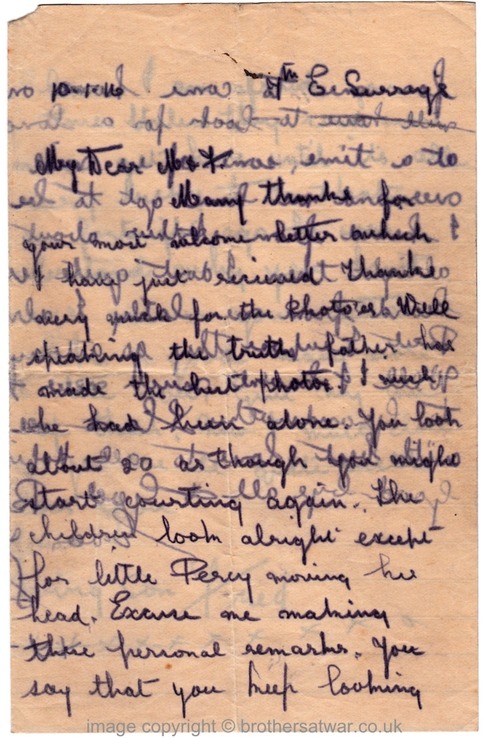 10-1-16 7th E. Surrey's
My Dear Mrs
Many thanks for
your most welcome letter which
I have just received. Thanks
very much for the Photo's. Well
speaking the truth, father has
made the best photo. I wish
he had been alone. You look
about 20 as though you might
start courting again. The
children look alright except
for little Percy moving his
head. Excuse me making
these personal remarks. You
say that you keep looking
image copyright © brothersatwar.co.uk